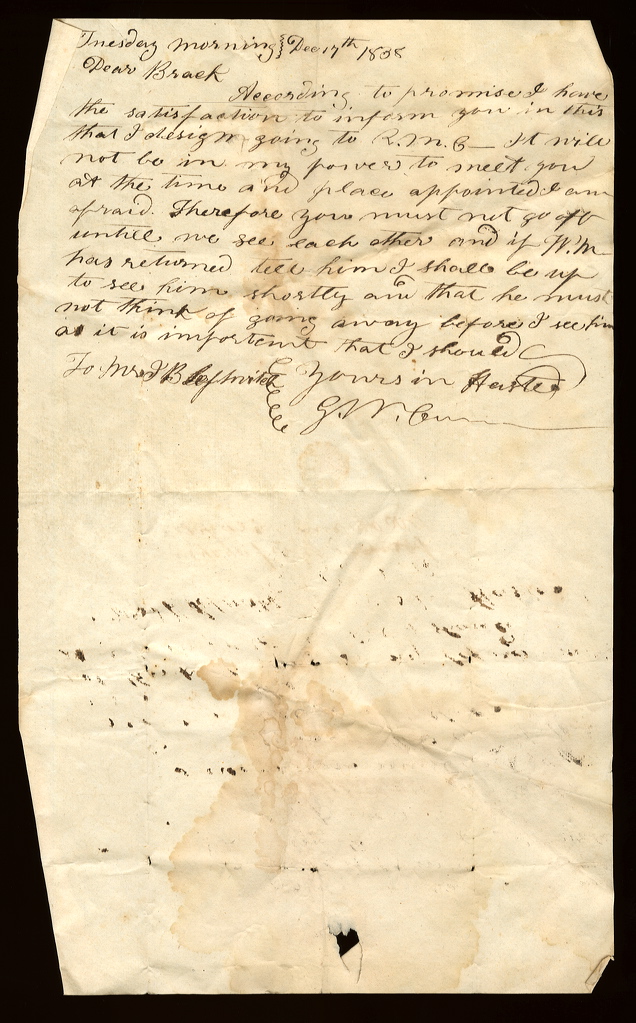 Tuesday morning Dec 17th 1838
Dear Brack
According to promise I have
the satisfaction to inform you in this
that I design going to R.M.C— It will
not be in my power to meet you
at the time and place appointed I am
afraid. Therefore you must not go off
untill we see each other and if W.M.
has returned tell him I shall be up
to see him shortly and that he must
not think of going away before I see him
as it is important that I should
To Mr J B Yours in Haste
G. W.